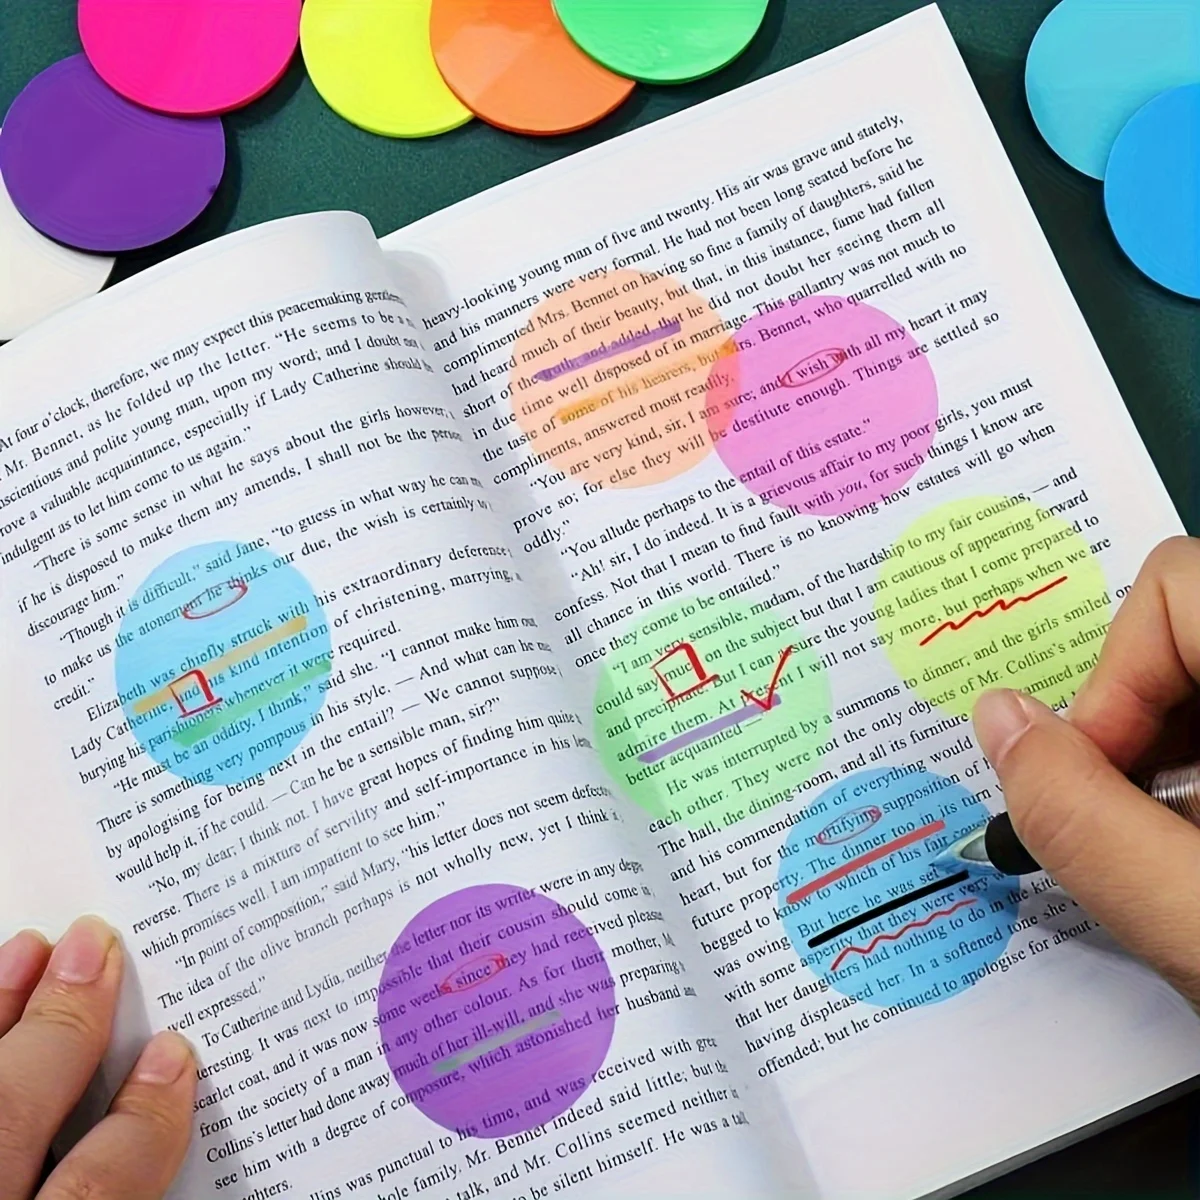 At four o'clock, therefore, we may expect this peacemaking
Mr. Bennet, as he folded up the letter. "He seems to be a
and polite young man, upon my word; and I doubt
a valuable acquaintance, especially if Lady Catherine should
indulgent as to let him come to us again."
"There is some sense in what he says about the girls however,
if he is disposed to make them any amends, I shall not be the
discourage him."
"Though it is difficult," said Jane, "to guess in what way he can
to make us the atonement he thinks our due, the wish is certainly
credit."
Elizabeth was chiefly struck with his extraordinary deference
Lady Catherine, and his kind intention of christening, marrying,
burying his parishioners whenever it were required.
"He must be an oddity, I think," said she. "I cannot make him out
There is something very pompous in his style. — And what can he
by apologising for being next in the entail? — We cannot suppose
would help it, if he could. — Can he be a sensible man, sir?"
"No, my dear; I think not. I have great hopes of finding him quite
reverse. There is a mixture of servility and self-importance in his
which promises well. I am impatient to see him."
"In point of composition," said Mary, "his letter does not seem
The idea of the olive branch perhaps is not wholly new, yet I think
well expressed."
To Catherine and Lydia, neither the letter nor its writer were in any
It was next to impossible that their cousin should come in
scarlet coat, and it was now some weeks since they had received
from the society of a man in any other colour. As for their mother,
Collins's letter had done away much of her ill-will, and she was preparing
see him with a degree of composure, which astonished her husband
was punctual to his time, and was received with
family. Mr. Bennet indeed said little; but the
talk, and Mr. Collins seemed neither
be silent himself. He was a
heavy-looking young man of five and twenty. His air was grave and stately,
and his manners were very formal. He had not been long seated before he
complimented Mrs. Bennet on having so fine a family of daughters, said he
had heard much of their beauty, but that, in this instance, fame had fallen
short of the truth; and added, that he did not doubt her seeing them all
in due time well disposed of in marriage. This gallantry was not much to
the taste of some of his hearers, but Mrs. Bennet, who quarrelled with no
compliments, answered most readily,
"You are very kind, sir, I am sure; and I wish with all my heart it may
prove so; for else they will be destitute enough. Things are settled so
oddly."
"You allude perhaps to the entail of this estate."
"Ah! sir, I do indeed. It is a grievous affair to my poor girls, you must
confess. Not that I mean to find fault with you, for such things I know are
all chance in this world. There is no knowing how estates will go when
once they come to be entailed."
"I am very sensible, madam, of the hardship to my fair cousins, — and
could say much on the subject but that I am cautious of appearing forward
and precipitate. But I can assure the young ladies that I come prepared to
admire them. At present I will not say more, but perhaps when we are
better acquainted —"
He was interrupted by a summons to dinner; and the girls smiled on
each other. They were not the only objects of Mr. Collins's
The hall, the dining-room, and all its furniture examined and
and his commendation of everything would
heart, but for the mortifying supposition of
future property. The dinner too in its turn
begged to know to which of his fair
was owing. But here he was set
with some asperity that they were very
that her daughters had nothing to do in the
having displeased her. In a softened tone she
offended; but he continued to apologise for about